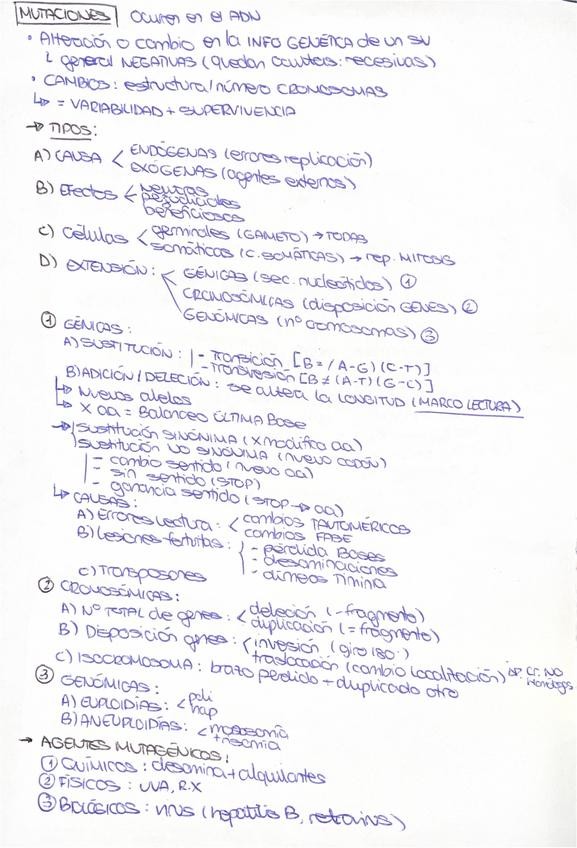 MUTACIONES Ocurren en el ADN
• Alteración o cambio en la INFO GENÉTICA de un SV
↳ general NEGATIVAS (quedan ocultas: recesivas)
• CAMBIOS: estructura/número CROMOSOMAS
↳ = VARIABILIDAD + SUPERVIVENCIA
→ TIPOS:
A) CAUSA < ENDÓGENAS (errores replicación)
EXÓGENAS (agentes externos)
B) Efectos < neutras
perjudiciales
beneficiosas
C) Células < germinales (GAMETO) → TODAS
somáticas (C. SOMÁTICAS) → rep. MITOSIS
D) EXTENSIÓN: < GÉNICAS (sec. nucleótidos) ①
CROMOSÓMICAS (disposición GENES) ②
GENÓMICAS (nº cromosomas) ③
① GÉNICAS:
A) SUSTITUCIÓN: | - Transición [B = / A-G) (C-T)]
- Transversión [B ≠ (A-T) (G-C)]
B) ADICIÓN / DELECIÓN: se altera la LONGITUD (MARCO LECTURA)
↳ Nuevos alelos
↳ X aa = Balanceo ÚLTIMA Base
→ Sustitución SINÓNIMA (X modifica aa)
Sustitución NO SINÓNIMA (nuevo codón)
- cambio sentido (nuevo aa)
- sin sentido (STOP)
- ganancia sentido (STOP → aa)
↳ CAUSAS:
A) Errores Lectura: < cambios TAUTOMÉRICOS
cambios FASE
B) Lesiones fortuitas: - pérdida Bases
- desaminaciones
- dímeros Timina
C) Transposones
② CROMOSÓMICAS:
A) Nº TOTAL de genes: < deleción (-fragmento)
duplicación (= fragmento)
B) Disposición genes: < inversión (giro 180º)
traslocación (cambio localización) Cr. NO
homólogs
C) ISOCROMOSOMA: brazo perdido + duplicado otro
③ GENÓMICAS:
A) EUPLOIDÍAS: < poli
hap
B) ANEUPLOIDÍAS: < monosomía
trisomía
→ AGENTES MUTAGÉNICOS:
① QUÍMICOS: desamina + alquilantes
② FÍSICOS: UVA, R.X
③ BIOLÓGICOS: virus (hepatitis B, retrovirus)